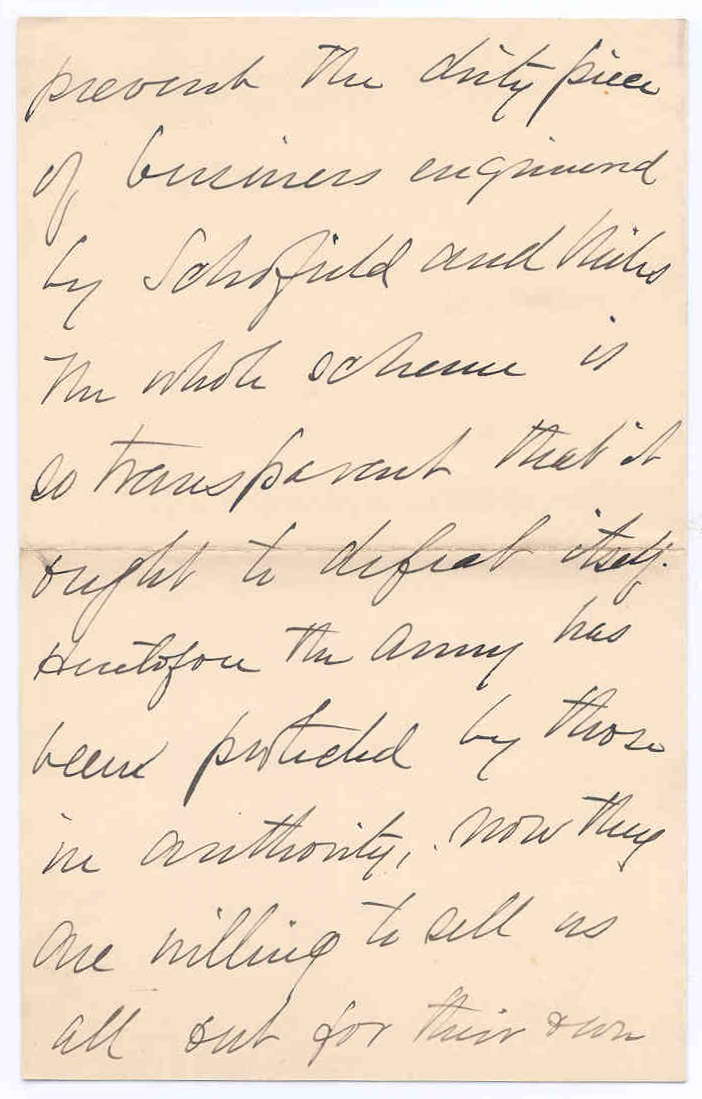 prevent the dirty piece
of business engineered
by Schofield and Miles
The whole scheme is
so transparent that it
ought to defeat itself.
Heretofore the Army has
been protected by those
in authority, now they
are willing to sell us
all out for their own